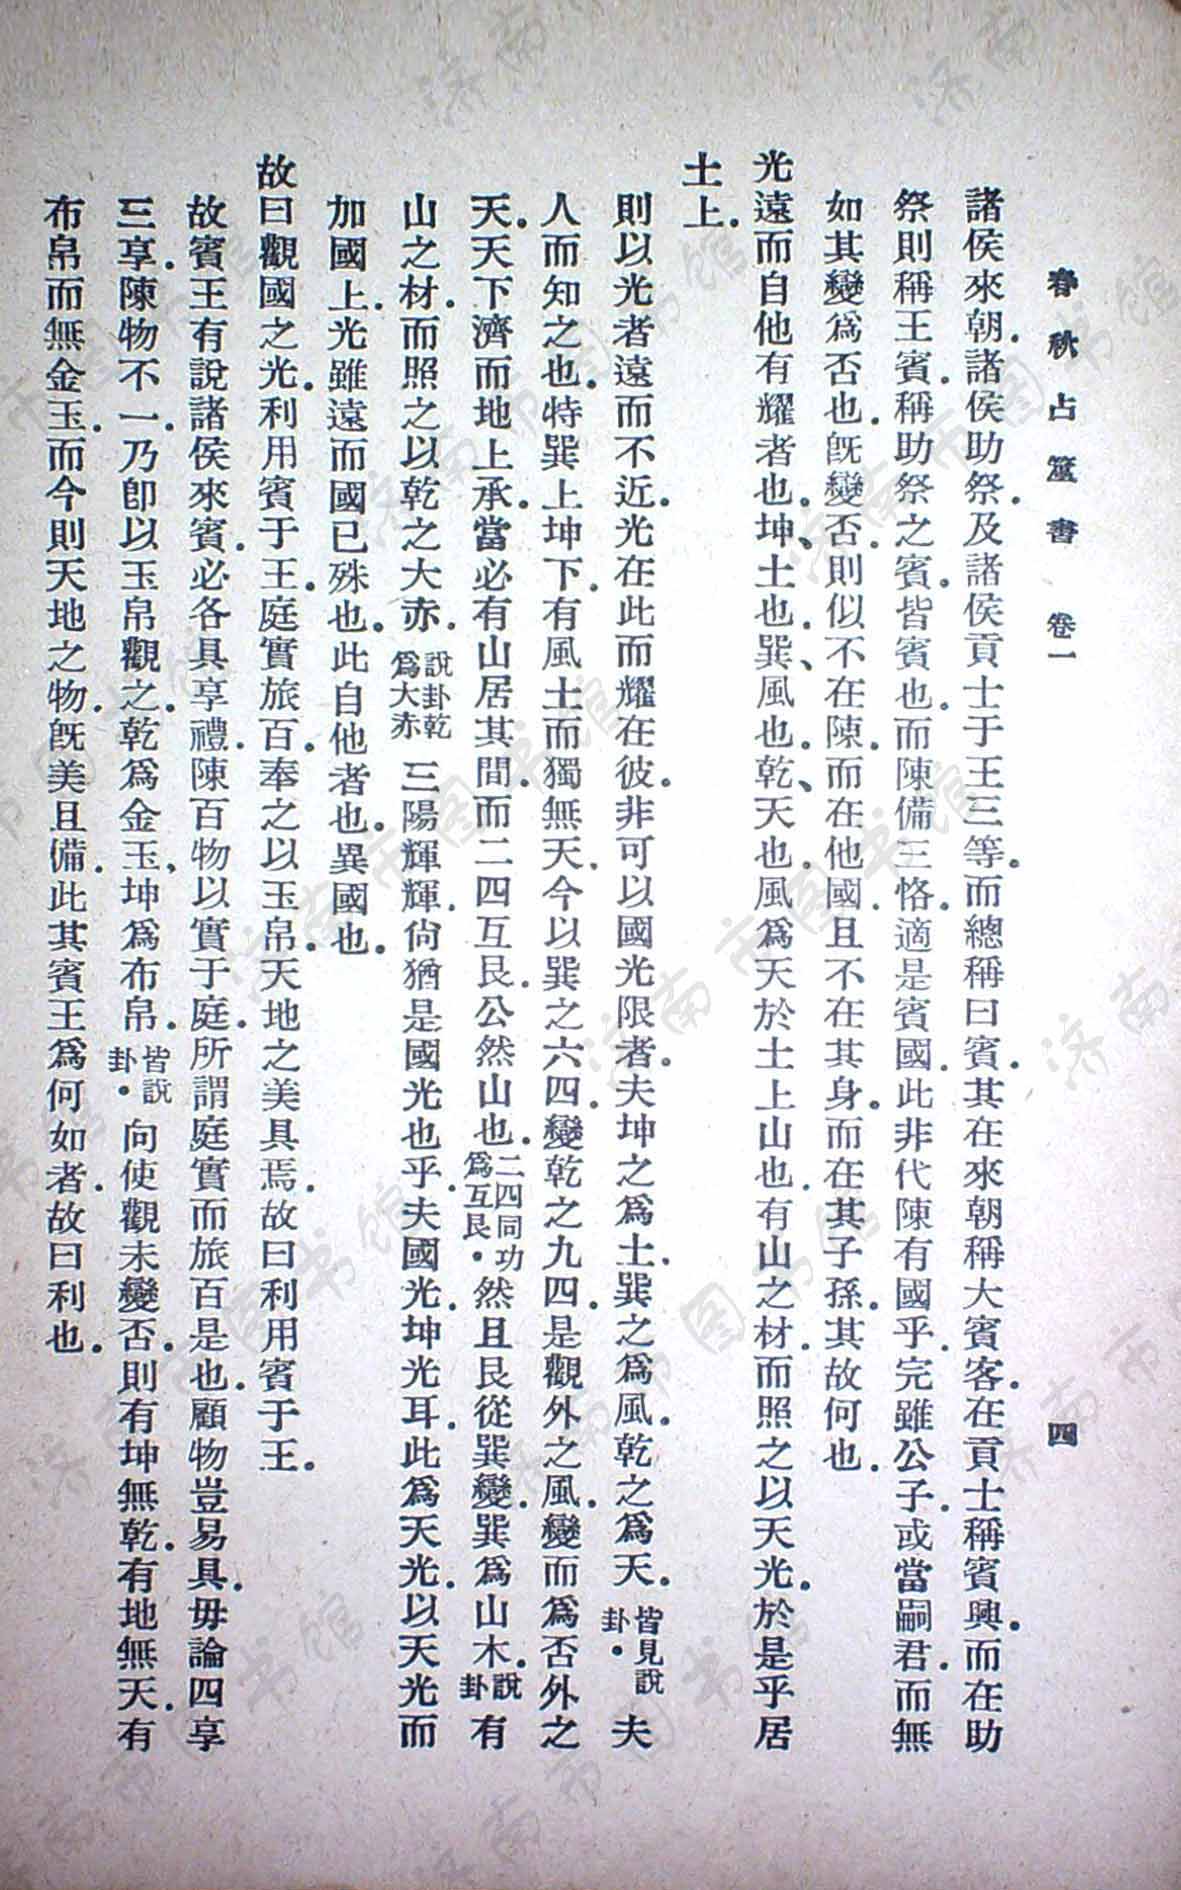 春秋占筮書 卷一 四
諸侯來朝。諸侯助祭。及諸侯貢士于王三等。而總稱曰賓。其在來朝稱大賓客。在貢士稱賓興。而在助
祭則稱王賓。稱助祭之賓。皆賓也。而陳備三恪。適是賓國。此非代陳有國乎。完雖公子。或當嗣君。而無
如其變爲否也。旣變否。則似不在陳。而在他國。且不在其身。而在其子孫。其故何也。
光遠而自他有耀者也。坤、土也。巽、風也。乾、天也。風爲天於土上山也。有山之材。而照之以天光。於是乎居
土上。
則以光者遠而不近。光在此而耀在彼。非可以國光限者。夫坤之爲土。巽之爲風。乾之爲天。皆見說卦。夫
人而知之也。特巽上坤下。有風土而獨無天。今以巽之六四。變乾之九四。是觀外之風。變而爲否外之
天。天下濟而地上承。當必有山居其間。而二四互艮。公然山也。二四同功爲互艮。然且艮從巽變。巽爲山木。說卦有
山之材。而照之以乾之大赤。說卦乾爲大赤三陽輝輝。尙猶是國光也乎。夫國光。坤光耳。此爲天光。以天光而
加國上。光雖遠而國已殊也。此自他者也。異國也。
故曰觀國之光。利用賓于王。庭實旅百。奉之以玉帛。天地之美具焉。故曰利用賓于王。
故賓王有說諸侯來賓。必各具享禮。陳百物以實于庭。所謂庭實而旅百是也。顧物豈易具。毋論四享
三享。陳物不一。乃卽以玉帛觀之。乾爲金玉、坤爲布帛。皆說卦。向使觀未變否。則有坤無乾。有地無天。有
布帛而無金玉。而今則天地之物。旣美且備。此其賓王爲何如者。故曰利也。
濟南市图书馆